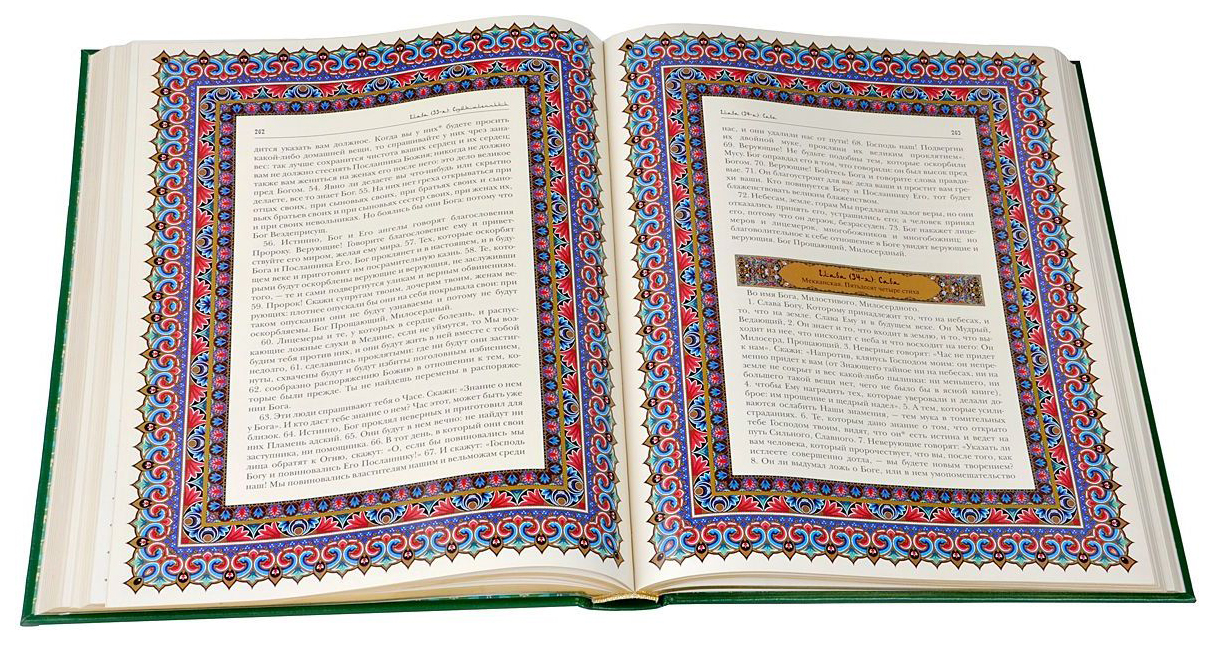 262
Глава (33-я): Сублимательных
дится указать вам должное. Когда вы у них* будете просить
какой-либо домашней вещи, то спрашивайте у них чрез зана-
вес: так лучше сохранится чистота ваших сердец и их сердец;
вам не должно стеснять Посланника Божия; никогда не должно
также вам жениться на женах его после него: это дело великое
пред Богом. 54. Явно ли делаете вы что-нибудь или скрытно
делаете, все то знает Бог. 55. На них нет греха открываться при
отцах своих, при сыновьях своих, при братьях своих и сыно-
вьях братьев своих и при сыновьях сестер своих, при женах их,
и при своих невольниках. Но боялись бы они Бога: потому что
Бог Вездеприсущ.
56. Истинно, Бог и Его ангелы говорят благословения
Пророку. Верующие! Говорите благословение ему и привет-
ствуйте его миром, желая ему мира. 57. Тех, которые оскорбят
Бога и Посланника Его, Бог проклянет и в настоящем, и в буду-
щем веке и приготовит им посрамительную казнь. 58. Те, кото-
рыми будут оскорблены верующие и верующия, не заслуживши
того, — те и сами подвергнутся уликам и верным обвинениям.
59. Пророк! Скажи супругам твоим, дочерям твоим, женам ве-
рующих: плотнее опускали бы они на себя покрывала свои: при
таком опускании они не будут узнаваемы и потому не будут
оскорбляемы. Бог Прощающий, Милосердный.
60. Лицемеры и те, у которых в сердце болезнь, и распус-
кающие ложные слухи в Медине, если не уймутся, то Мы воз-
будим тебя против них, и они будут жить в ней вместе с тобой
недолго, 61. сделавшись проклятыми: где ни будут они застиг-
нуты, схвачены будут и будут избиты поголовным избиением,
62. сообразно распоряжению Божию в отношении к тем, ко-
торые были прежде. Ты не найдешь перемены в распоряже-
нии Бога.
63. Эти люди спрашивают тебя о Часе. Скажи: «Знание о нем
у Бога». И кто даст тебе знание о нем? Час этот, может быть уже
близок. 64. Истинно, Бог проклял неверных и приготовил для
них Пламень адский. 65. Они будут в нем вечно; не найдут ни
заступника, ни помощника. 66. В тот день, в который они свои
лица обратят к Огню, скажут: «О, если бы повиновались мы
Богу и повиновались Его Посланнику!» 67. И скажут: «Господь
наш! Мы повиновались властителям нашим и вельможам среди
Глава (34-я): Саба
263
нас, и они удалили нас от пути! 68. Господь наш! Подвергни
их двойной муке, прокляни их великим проклятием».
69. Верующие! Не будьте подобны тем, которые оскорбили
Мусу. Бог оправдал его в том, что говорили: он был высок пред
Богом. 70. Верующие! Бойтесь Бога и говорите слова правди-
вые. 71. Он благоустроит для вас дела ваши и простит вам гре-
хи ваши. Кто повинуется Богу и Посланнику Его, тот будет
блаженствовать великим блаженством.
72. Небесам, земле, горам Мы предлагали залог веры, но они
отказались принять его, устрашились его; а человек принял
его, потому что он дерзок, безрассуден. 73. Бог накажет лице-
меров и лицемерок, многобожников и многобожниц; но
благоволительное к себе отношение в Боге увидят верующие и
верующия. Бог Прощающий, Милосердный.
Глава (34-я): Саба
Мекканская. Пятьдесят четыре стиха
Во имя Бога, Милостивого, Милосердного.
1. Слава Богу, Которому принадлежит то, что на небесах, и
то, что на земле. Слава Ему и в будущем веке. Он Мудрый,
Ведающий, 2. Он знает и то, что входит в землю, и то, что вы-
ходит из нее, что нисходит с неба и что восходит на него: Он
Милосерд, Прощающий. 3. Неверные говорят: «Час не придет
к нам». Скажи: «Напротив, клянусь Господом моим: он непре-
менно придет к вам (от Знающего тайное ни на небесах, ни на
земле не сокрыт и вес какой-либо пылинки: ни меньшего, ни
большего такой вещи нет, чего не было бы в ясной книге),
4. чтобы Ему наградить тех, которые уверовали и делали до-
брое: им прощение и щедрый надел». 5. А тем, которые усили-
ваются ослабить Наши знамения, — тем мука в томительных
страданиях. 6. Те, которым дано знание о том, что открыто
тебе Господом твоим, видят, что он* есть истина и ведет на
путь Сильного, Славного. 7. Неверующие говорят: «Указать ли
вам человека, который пророчествует, что вы, после того, как
истлеете совершенно дотла, — вы будете новым творением?
8. Он ли выдумал ложь о Боге, или в нем умопомешательство